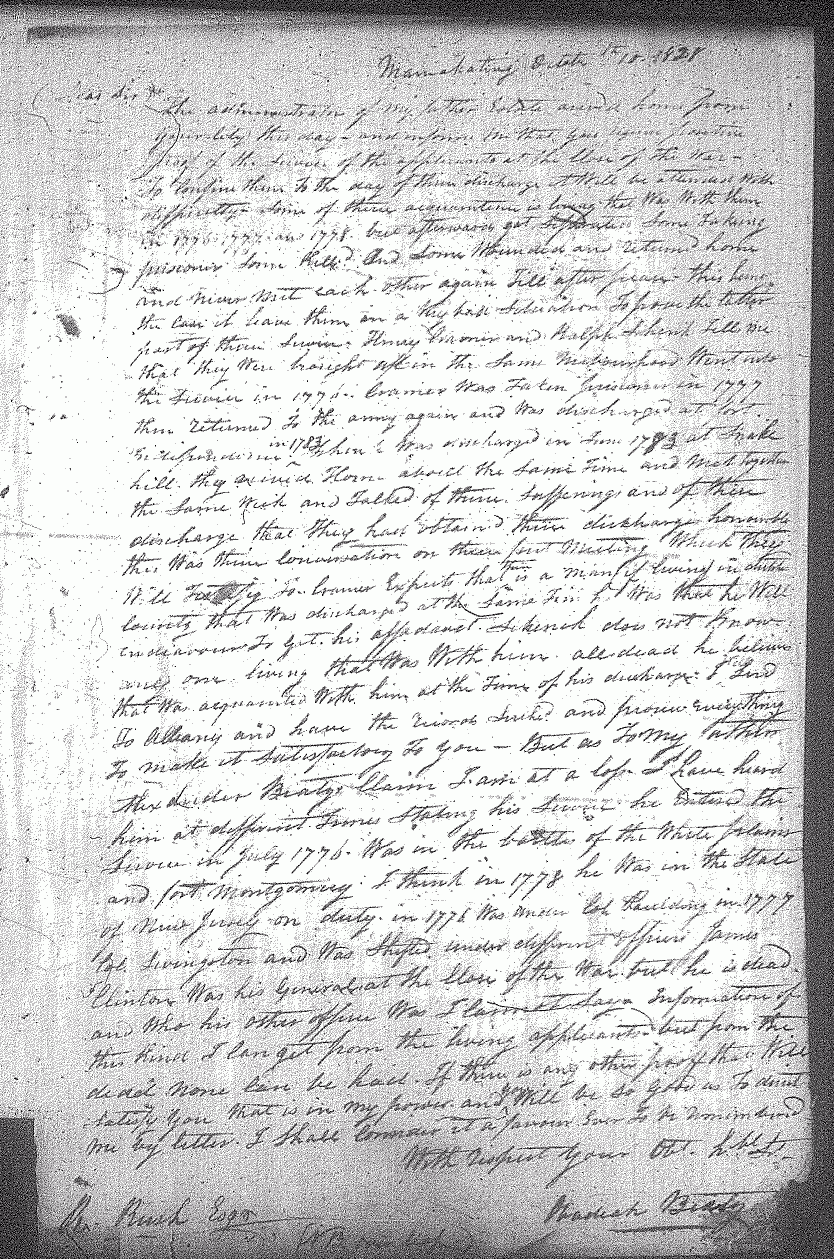 Mamakating October 18th 1828
Dear Sir
The administrator of my father Estate arived home from
your City this day - and informs me that you require positive
proof of the Service of the applicants at the Close of the War -
To Confine them To the day of there discharge it Will be attended With
difficulty Some of there acquaintence is living that Was With them
in 1776-1777 and 1778 but afterwards got Seperated Some Taking
prisoner Some Killd And Some Wounded and returnd home
and never met each other again Till after peace - this being
the case it leave them on a very bad Situation To prove the latter
part of there Service - Henry Cramer and Ralph Schenk Tell me
that they Were brought up in the Same Neibourhood Went into
the Service in 1776 - Cramer Was Taken prisoner in 1777
then returned To the army again and Was discharged at fort
in 1783 Schenk Was discharged in June 1783 at Snake
hill. they arived Home about the Same Time and met together
the Same Week and Talked of there Sufferings and of there
discharge that they had obtaind there discharge honourable
this Was there Conversation on there first Meeting Which they
Will To. Cramer Expects that there is a man if living in
County that Was discharged at the Same Time he Was that he Will
endeavour To get his affedavit. Schenck does not Know
any one living that Was With him all dead he believes
that Was acquainted With him at the Time of his discharge. I Send
To Albany and have the Records and procure everything
To make it Satisfactory To you - But as To my fathers
Alexander Beatys Claim I am at a loss I have heard
him at different Times Stating his Service he Entered the
Service in July 1776. Was in the battle of the White plains
and fort Montgomery. I think in 1778 he Was in the State
of New Jersey on duty. in 1776 Was under Col. Paulding in 1777
Col. Livingston and Was Shifted under different officers James
Clinton Was his General at the Close of the War but he is dead
and Who his other officer Was I Cannot Say Information of
this Kind I Can get from the living applicants but from the
dead None Can be had. If there is any other proof that Will
Satisfy You that is in my power and Will be So good as To direct
me by letter. I Shall Consider it a favour Ever To be remembered
With respect Your Obt.
Rush Esqr Beaty